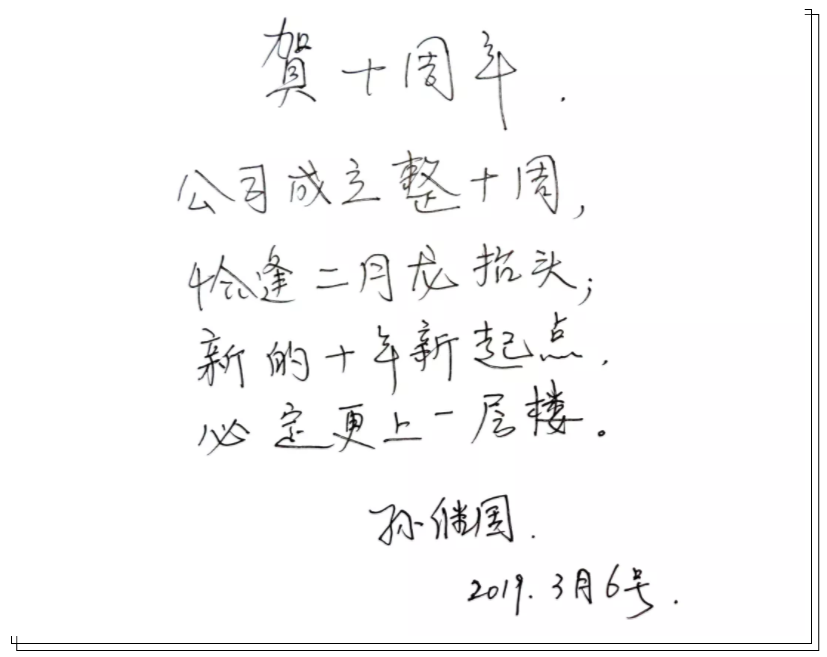 贺十周年.
公司成立整十周,
恰逢二月龙抬头;
新的十年新起点.
必定更上一层楼。
孙继周.
2019.3月6号.